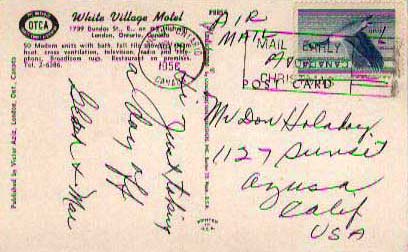 OTCA
White Village Motel
1739 Dundas St., E., on #2 Highway
London, Ontario, Canada
50 Modern units with bath, full tile showers
heat, cross ventilation, television, radio and tele-
phone, Broadloom rugs. Restaurant on premises.
Tel. 2-6386.
Published by Victor Aziz, London, Ont., Canada
Hi Just taking
a day off
& Mae
AIR
MAIL
MAIL EARLY
FOR
CHRISTMAS
CANADA
ONTARIO
1956
POST CARD
Mr Don Holaday
1127 Sunset
Azusa
Calif
USA